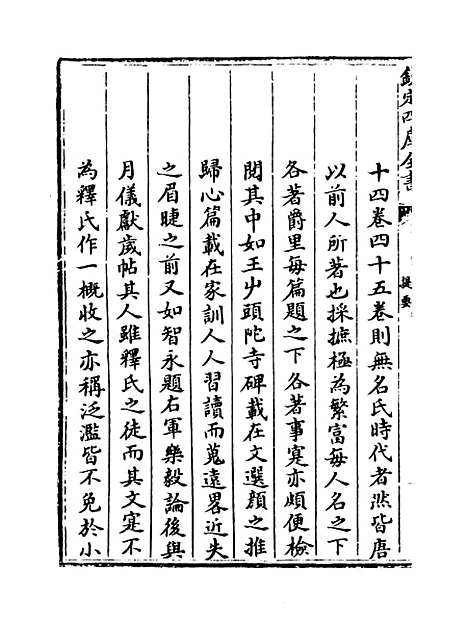 欽定四庫全書
提要
十四卷四十五卷則無名氏時代者然皆唐
以前人所著也採摭極為繁富每人名之下
各著爵里每篇題之下各著事寔亦頗便檢
閱其中如王屮頭陀寺碑載在文選顔之推
歸心篇載在家訓人人習讀而蒐遠畧近失
之眉睫之前又如智永題右軍樂毅論後與
月儀獻歲帖其人雖釋氏之徒而其文寔不
為釋氏作一概收之亦稱泛濫皆不免於小